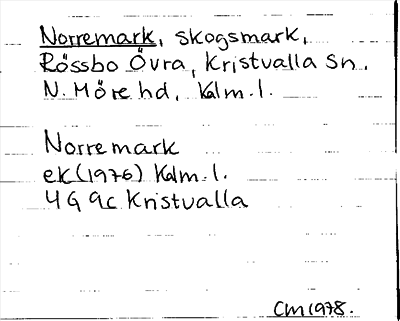 Norremark, skogsmark,
Rössbo Övra, Kristvalla Sn.
N. Möre hd, Kalm. l.
Norremark
ek (1976) Kalm. l.
4G 9c Kristvalla
CM 1978.